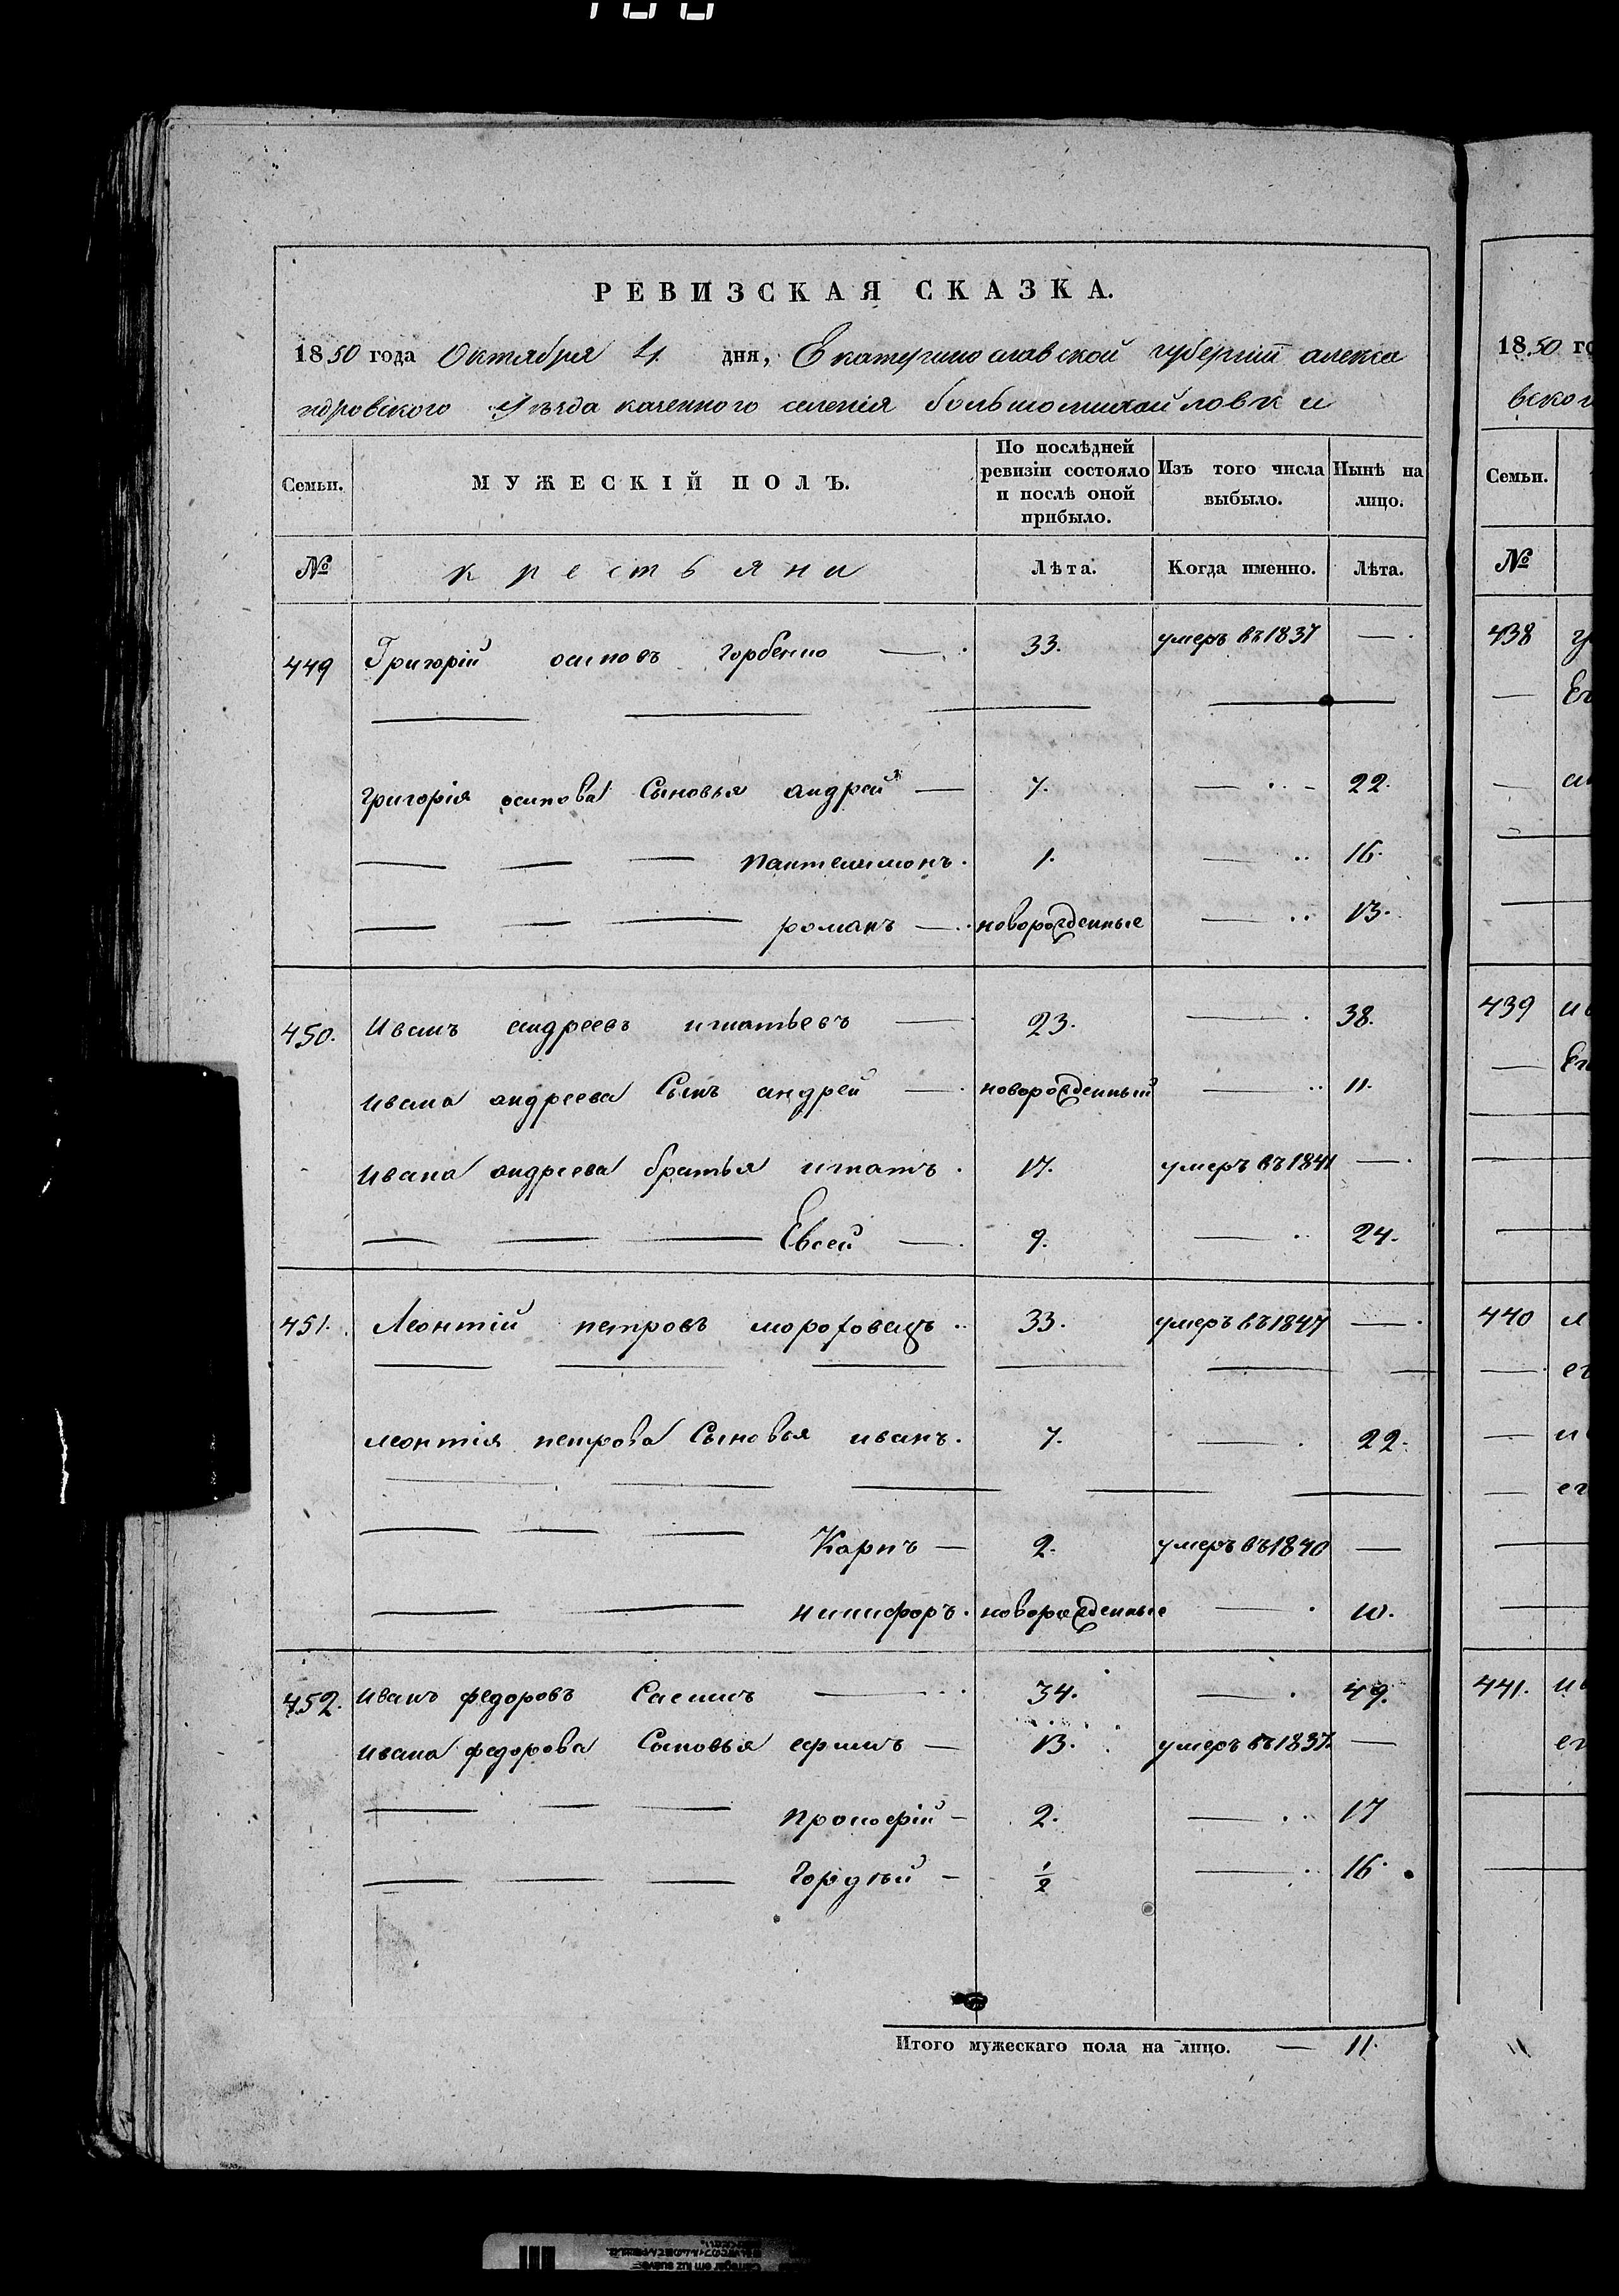 РЕВИЗСКАЯ СКАЗКА.
1850 года Октября 4 дня, Екатеринославской губерніи алекса
ндровского Уѣзда казенного селенія большомихайловки
Семьи. МУЖЕСКІЙ ПОЛЪ. По послѣдней ревизіи состояло и послѣ оной прибыло. Изъ того числа выбыло. Нынѣ на лицо.
№ крестьяни Лѣта. Когда именно. Лѣта.
449 Григорій осиповъ горбенко — 33. умеръ въ 1837 —
григорія осипова Сыновья андрей — 7. — 22.
— — — пантелимонъ. 1. — 16.
— — — романъ — новорожденные — 13.
450. Иванъ андреевъ игнатьевъ — 23. — 38.
ивана андреева Сынъ андрей — новорожденный — 11.
ивана андреева братья игнатъ. 17. умеръ въ 1841 —
— — — Евсей — 9. — 24.
451. Леонтій петровъ морозовецъ 33. умеръ въ 1847 —
леонтія петрова Сыновья иванъ. 7. — 22.
— — — Карпъ — 2. умеръ въ 1840 —
— — никифоръ. новорожденные — 10.
452. иванъ федоровъ — 34. — 49.
ивана федорова Сыновья ефимъ — 13. умеръ въ 1837. —
— — — прокофій — 2. — 17
— — — Гордѣй — ½ — 16.
Итого мужескаго пола на лицо. — 11.
1850 го
вског
Семьи.
№
438
439
440
441.